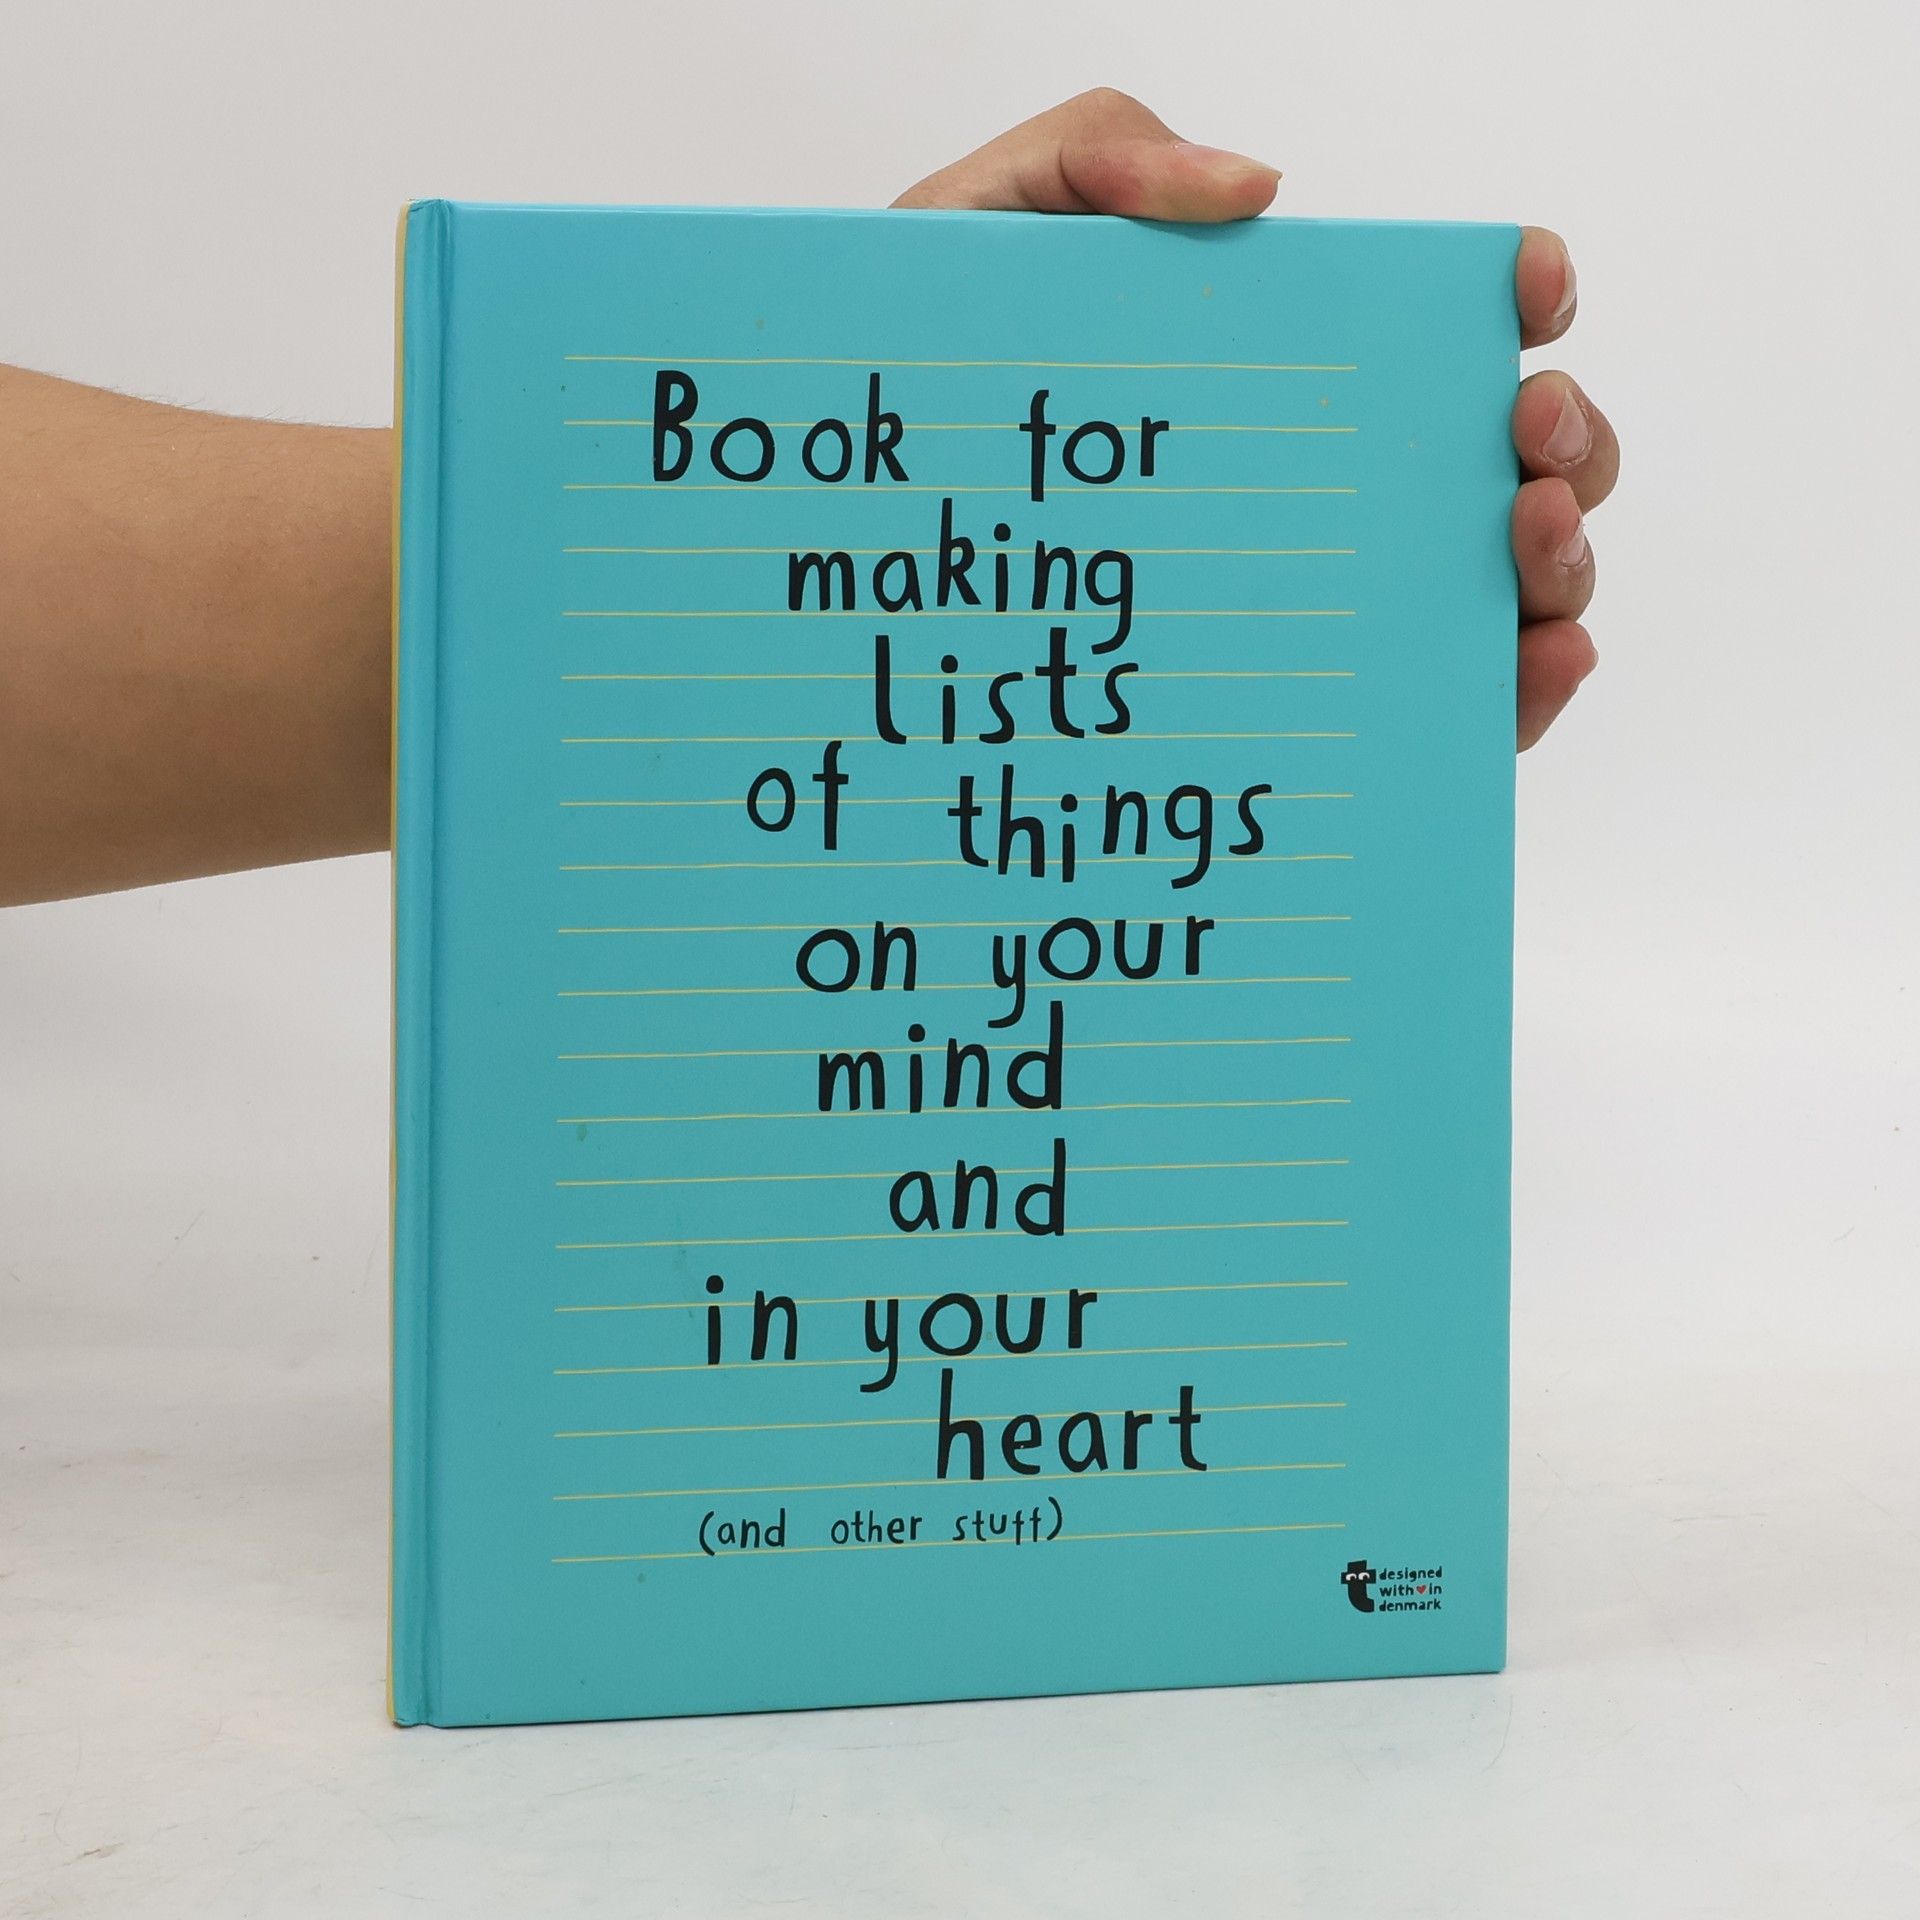 Book for
making
lists
of things
on your
mind
and
in your
heart
(and other stuff)
t designed
with♥in
denmark